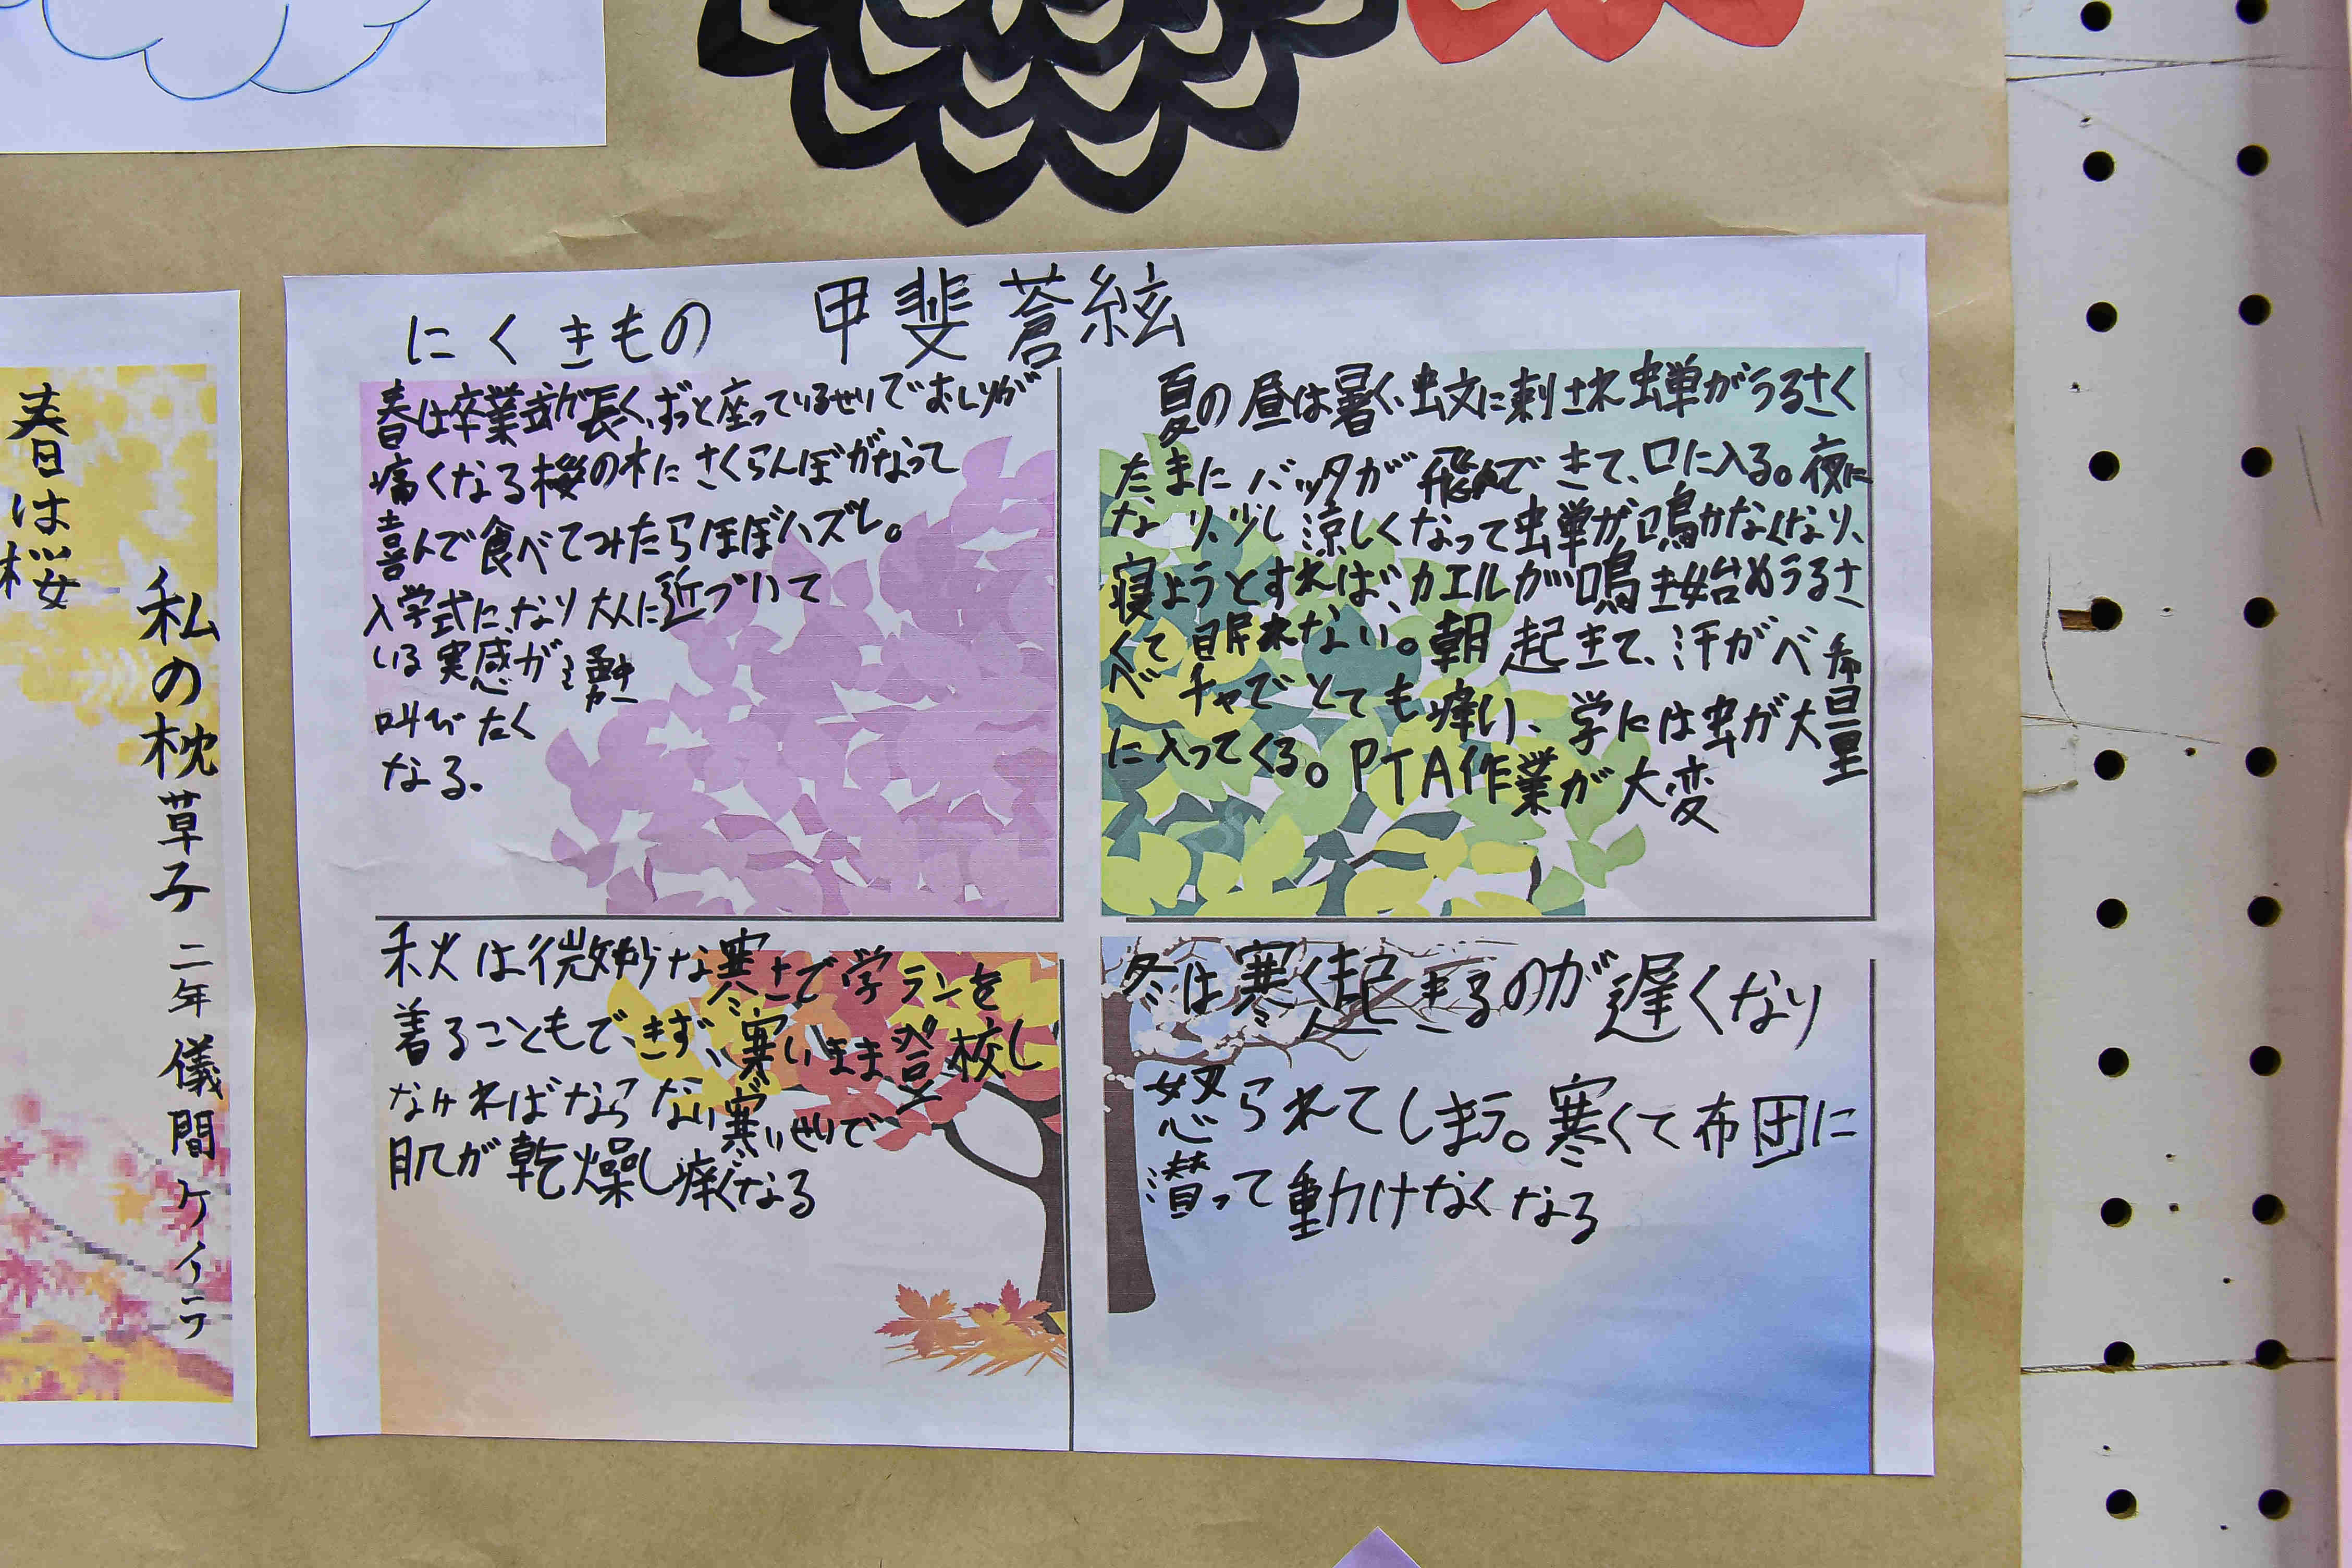 春は桜
私の枕草子 二年 儀間ケイラ
にくきもの 甲斐蒼絃
春は卒業式が長く、ずっと座っているせいでおしりが
痛くなる桜の木にさくらんぼがなって
喜んで食べてみたらほぼハズレ。
入学式になり大人に近づいて
いる実感が
叫びたく
なる。
夏の昼は暑く、蚊に刺され蝉がうるさく
たまにバッタが飛んできて、口に入る。夜に
なり、少し涼しくなって蝉が鳴かなくなり、
寝ようとすれば、カエルが鳴き始めうるさ
くて眠れない。朝起きて、汗がべ
べチャでとても痒い、学には虫が大量
に入ってくる。PTA作業が大変
秋は微妙な寒さで学ランを
着ることもできず、寒いまま登校し
なければならない寒いせいで
肌が乾燥し痒くなる
冬は寒く起きるのが遅くなり
怒られてしまう。寒くて布団に
潜って動けなくなる